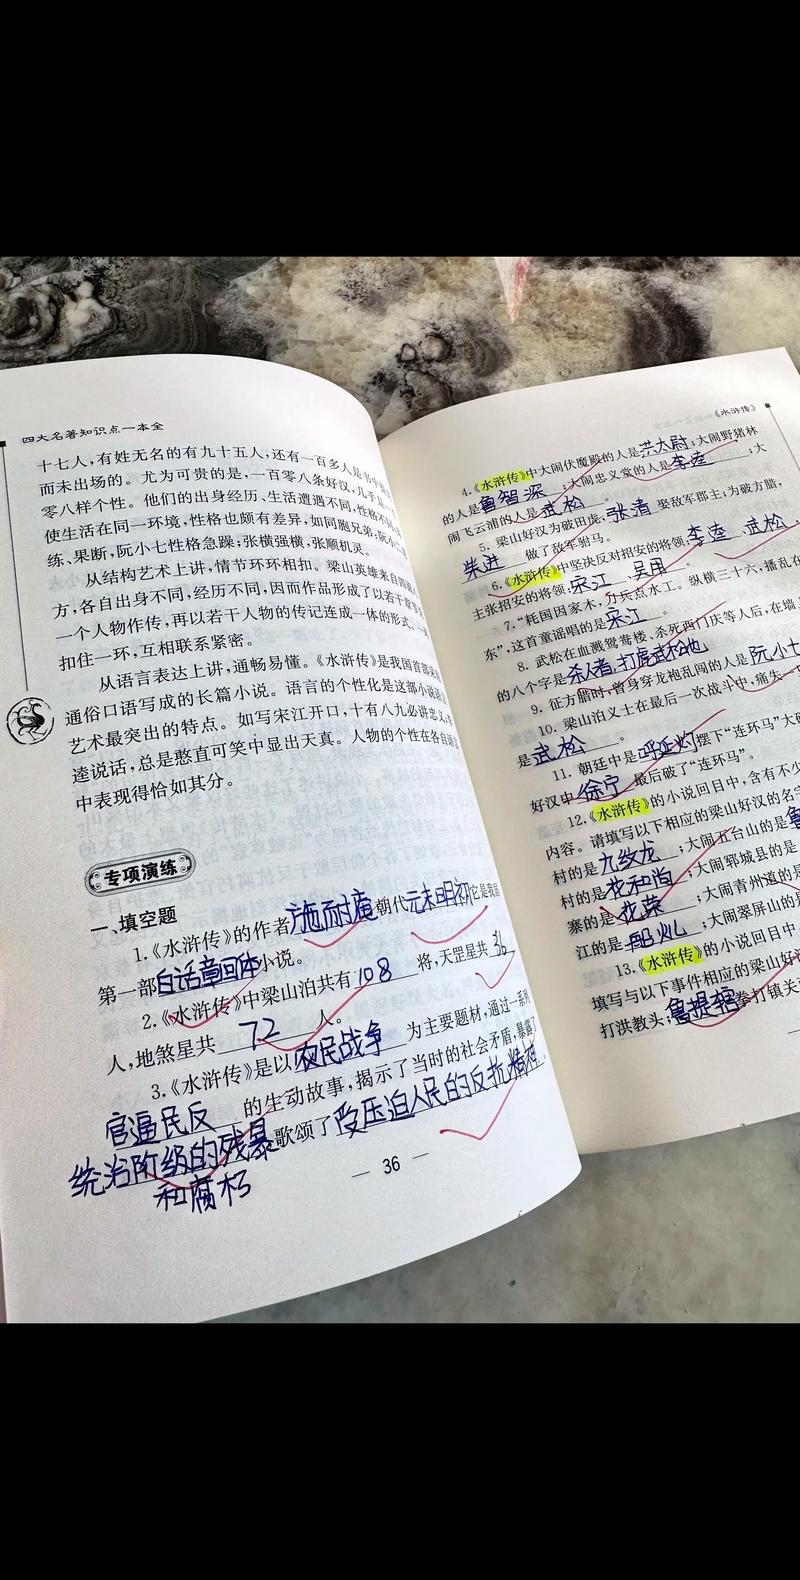 四大名著知识点一本全
十七人，有姓无名的有九十五人，还有一百多人是书中
而未出场的。尤为可贵的是，一百零八条好汉，几乎
零八样个性。他们的出身经历、生活遭遇不同，性格不
使生活在同一环境，性格也颇有差异，如同胞兄弟，阮小
练、果断，阮小七性格急躁；张横强横，张顺机灵。
从结构艺术上讲，情节环环相扣。梁山英雄来自四面
方，各自出身不同，经历不同，因而作品形成了以若干章节
一个人物作传，再以若干人物的传记连成一体的形式。一
扣住一环，互相联系紧密。
从语言表达上讲，通畅易懂。《水浒传》是我国首部
通俗口语写成的长篇小说。语言的个性化是这部小说语言
艺术最突出的特点。如写宋江开口，十有八九必讲忠义；李
逵说话，总是憨直可笑中显出天真。人物的个性在各自语言
中表现得恰如其分。
专项演练
一、填空题
1.《水浒传》的作者施耐庵朝代元末明初它是我国
第一部白话章回体小说。
2.《水浒传》中梁山泊共有108将，天罡星共36
人，地煞星共72人。
3.《水浒传》是以农民战争为主要题材，通过一系列
官逼民反的生动故事，揭示了当时的社会矛盾，暴露了
统治阶级的残暴歌颂了受压迫人民的反抗精神
和腐朽
— 36 —
《水浒传》
4.《水浒传》中大闹伏魔殿的人是洪太尉；大闹野猪林
的人是鲁智深；大闹忠义堂的人是李逵；大
闹飞云浦的人是武松。
5. 梁山好汉为破田虎，张清娶敌军郡主；为破方腊，
柴进做了敌军驸马。
6.《水浒传》中坚决反对招安的将领：李逵、武松
主张招安的将领：宋江、吴用。
7.“耗国因家木，刀兵点水工。纵横三十六，播乱在
东”，这首童谣唱的是宋江。
8. 武松在血溅鸳鸯楼、杀死西门庆等人后，在墙
的八个字是杀人者，打虎武松也
9. 征方腊时，曾身穿龙袍乱闯的人是阮小七
10. 梁山泊义士在最后一次战斗中，痛失一
是武松。
11. 朝廷中是呼延灼摆下“连环马”大破
好汉中徐宁最后破了“连环马”。
12.《水浒传》的小说回目中，含有不少
内容。请填写以下相应的梁山好汉的名字
村的是九纹龙；大闹五台山的是鲁
村的是花和尚；大闹郓城县的是
寨的是花荣；大闹青州道的是
江的是；大闹翠屏山的是
13.《水浒传》的小说回目中
填写与以下事件相应的梁山好汉
打洪教头；鲁提辖拳打镇关